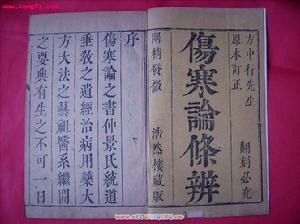 kongfz.com
方中行先生
原本訂正
翻刻必究
傷寒論條辨
精發微
浩然樓藏版
序
傷寒論之書仲景氏統道
垂教之遺經治病用藥大
方大法之藝祖醫系繼開
之要典有生之不可一日